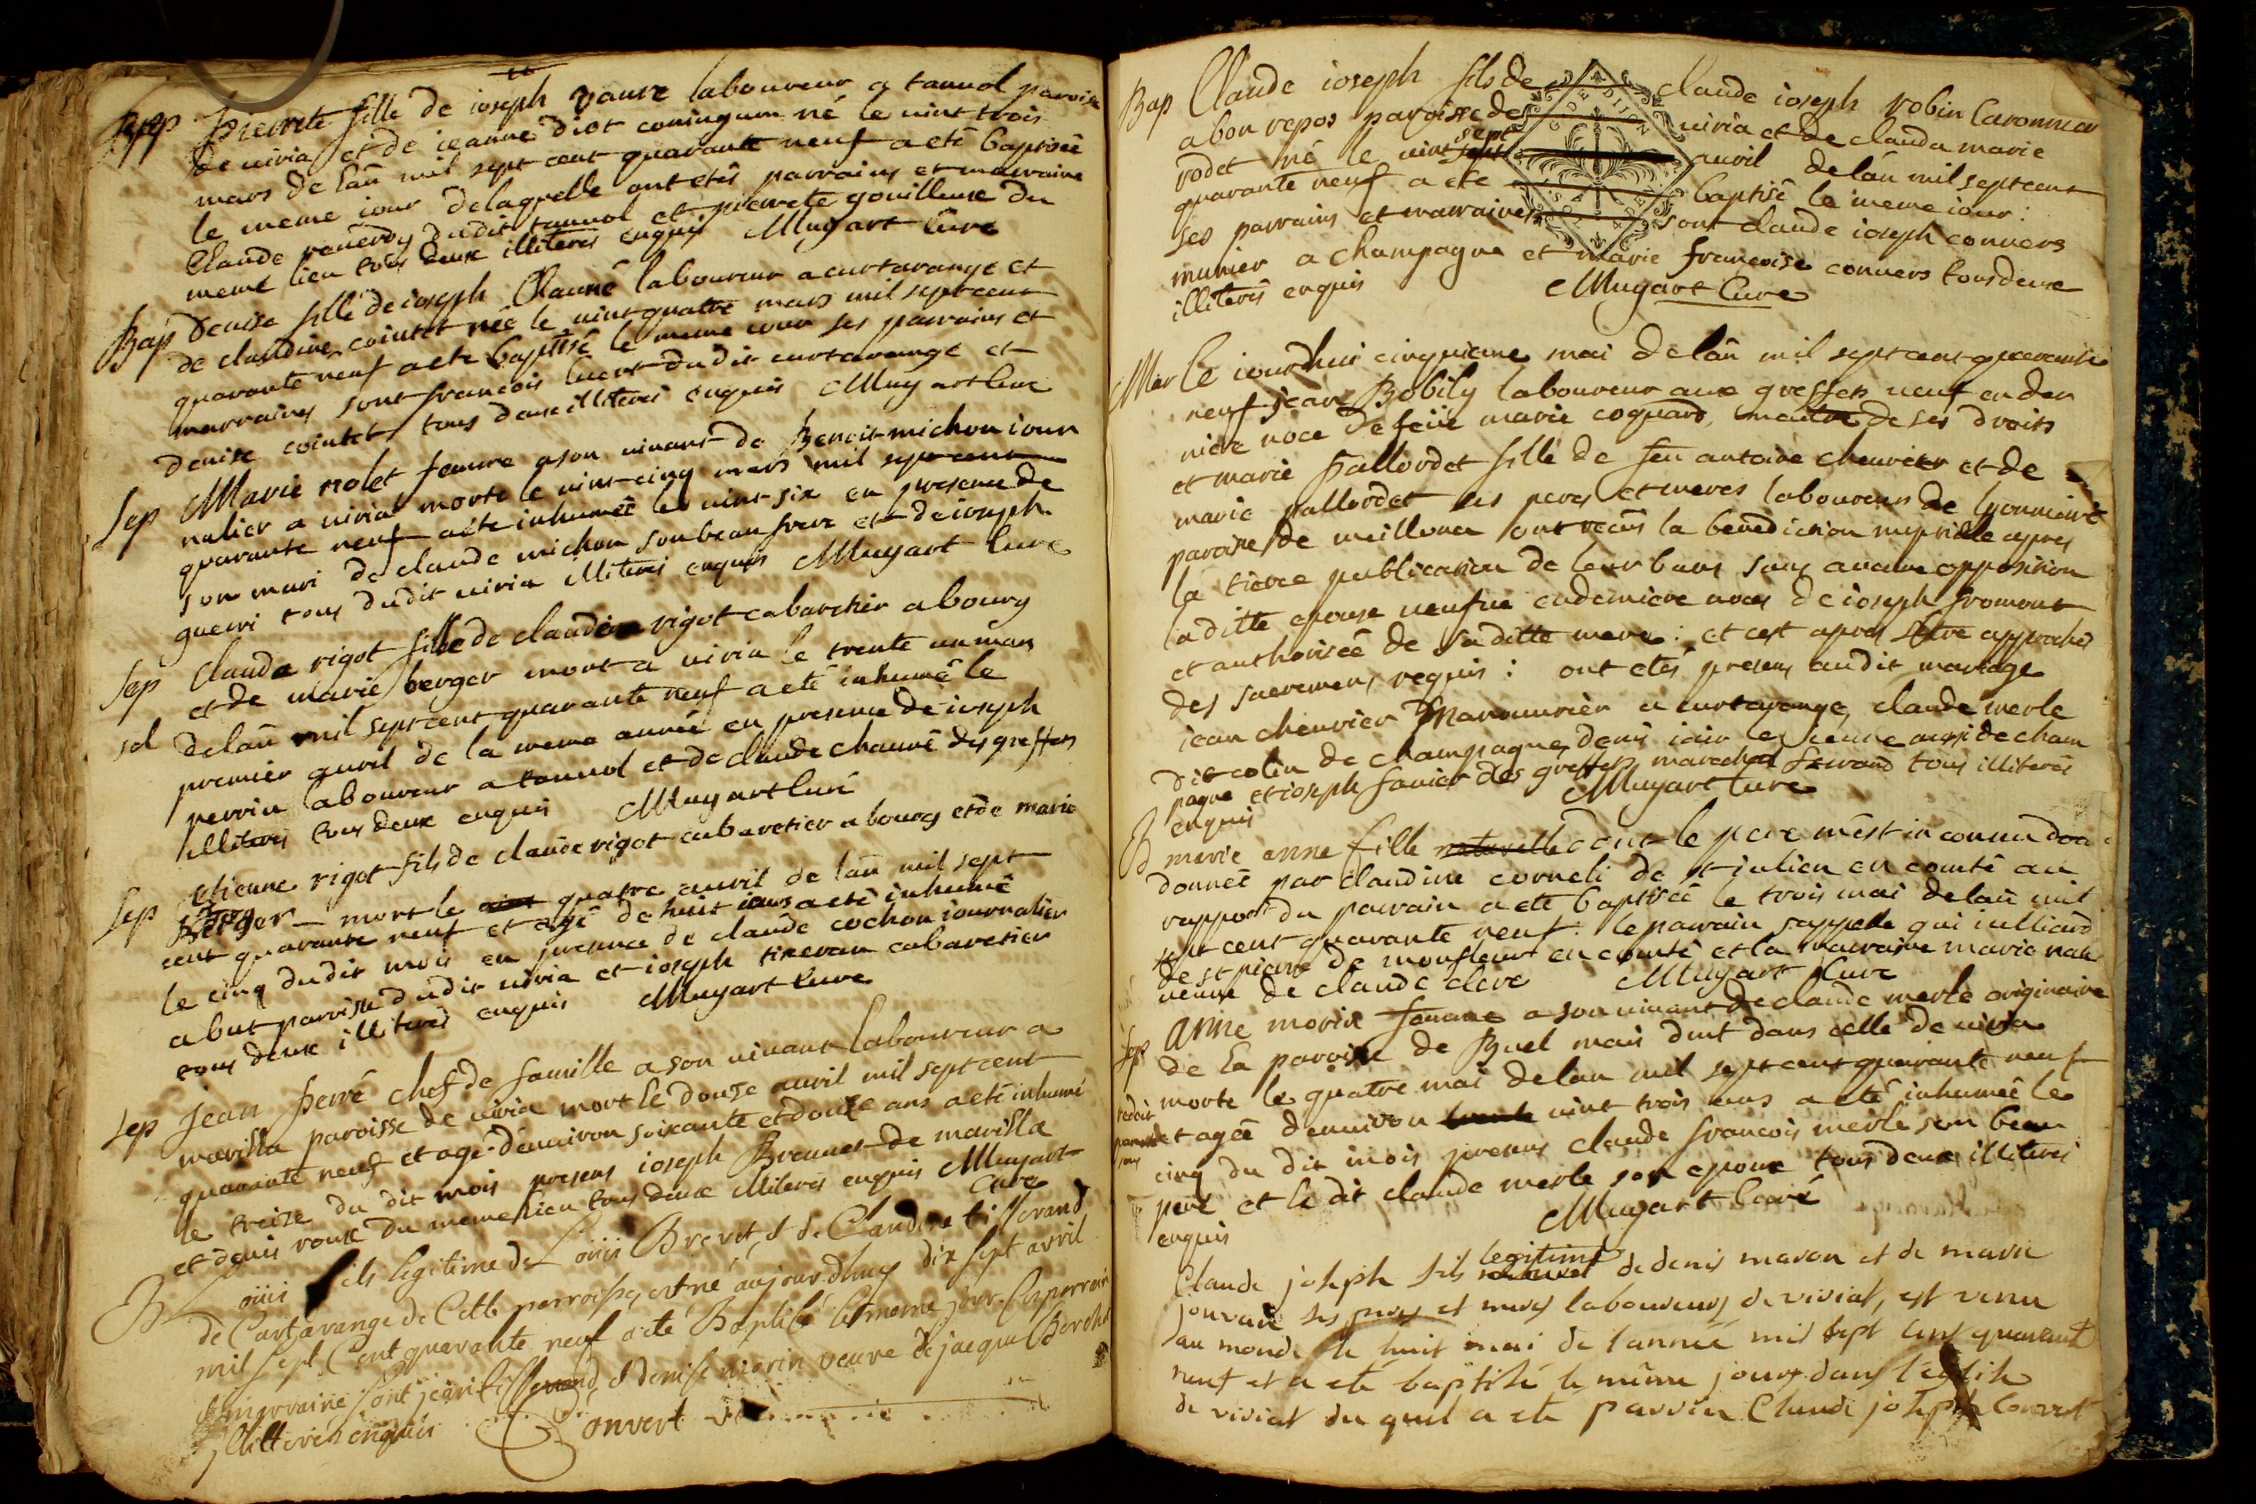 Bap Pierrete fille de ioseph vauré laboureur a tannol paroisse
de viria et de ieanne diot coningum né le vint trois
mars de lañ mil sept cent quarante neuf a eté baptisée
le meme iour delaquelle ont etés parrains et marraine
Claude dudit tannol et pierrete gouilleuse du
meme lieu tous deux illiterés enquis Muyart Curé
Bap Denise fille de ioseph Chauné laboureur a curtarange et
de claudine cointet née le vint quatre mars mil sept cent
quarante neuf a eté baptisé le meme iour ses parrains et
marraines sont francois dudit curtarange et
denise cointet tous deux illiterés enquis Muyart Curé
Sep Marie nolet femme a son vivant de Benoit michon iour
nalier a viria morte le vint cinq mars mil sept cent
quarante neuf a eté inhumée le vint six en presence de
son mari de claude michon son beau frere et de ioseph
guerri tous dudit viria illiterés enquis Muyart Curé
Sep Claude rigot fille de claude rigot cabartier a bourg
et de marie berger mort a viria le trente un mars
sol delañ mil sept cent quarante neuf a eté inhumé le
premier avril de la meme année en presence de ioseph
perrin laboureur a tannol et de claude chauné des greffets
illiterés tous deux enquis Muyart Curé
Sep etienne rigot fils de claude rigot cabaretier a bourg et de marie
Berger mort le vint quatre avril de lañ mil sept
cent quarante neuf et agé de huit iours a eté inhumé
le cinq dudit mois en presence de claude cochon iournalier
a but paroisse dudit viria et ioseph cabaretier
tous deux illiterés enquis Muyart Curé
Sep Jean ferré chef de famille a son vivant laboureur a
marilla paroisse de viria mort le douze avril mil sept cent
quarante neuf et agé denviron soixante et douze ans a eté inhumé
le treize du dit mois presens ioseph Brevet de marilla
et denis roux du meme lieu tous deux illiterés enquis Muyart
Curé
B Louis fils legitime de Louis Brevet, & de Claudine tisserand
de Cartarange de Cette parroisse, est né aujourdhuy dix sept avril
mil sept Cent quarante neuf a eté Baptisé le meme jour. Le parrain
& marraine sont jean tisserand, & denise morin veuve de jacque
illiterés enquis Convert
Bap Claude ioseph fils de claude ioseph robin
a bon repos paroisse de viria et de claude marie
rodet né le vint sept avril delañ mil sept cent
quarante neuf a eté baptisé le meme iour:
ses parrains et marraines sont claude ioseph convers
munier a champagne et marie francoise convers tous deux
illiterés enquis Muyart Curé
Mar Ce iourdhui cinquieme mai delañ mil sept cent quarante
neuf jean Bobily laboureur aux greffets veuf en der
niere noce de feüe marie coquard, maitre de ses droits
et marie pallordet fille de feu antoine chevrier et de
marie pallordet ses peres et meres laboureurs de
paroisse de meillona ont recûs la benediction nuptialle apres
la tierce publication de leur bans sans aucune opposition
laditte epouse veufve en derniere noces de ioseph fromont
et authorisée de saditte mere: et cest apres setre approchés
des sacremens requis: ont etés presens audit mariage
iean chevrier manouvrier a curtarange, claude merle
dit colin de champagne, denis le ieune aussi de cham
pagne et ioseph favier des greffets marechal ferrand tous illiterés
enquis Muyart Curé
B marie anne fille naturelle dont le pere mest inconnu
donnée par claudine corneli de st iulien en comté au
rapport du parrain a eté baptisée le trois mai delañ mil
sept cent quarante neuf: le parrain sappelle gui iulliard
de st pierre de monfleur en comté et la marraine marie
veuve de claude clerc Muyart Curé
Sep anne morin femme a son vivant de claude merle originaire
de la paroisse de Buel mais dmt dans celle de viria
morte le quatre mai delan mil sept cent quarante neuf
et agée denviron trente vint trois ans a eté inhumée le
cinq du dit mois presens claude francois merle son beau
pere et le dit claude merle son epoux tous deux illiterés
enquis Muyart Curé
Claude joseph fils legitime de denis maron et de marie
jouvan ses peres et meres laboureurs de viriat, est venu
au monde le huit mai de l'anneé mil sept cens quarante
neuf et a eté baptisé le même jour dans l'église
de viriat du quel a eté parrin Claude joseph Convert